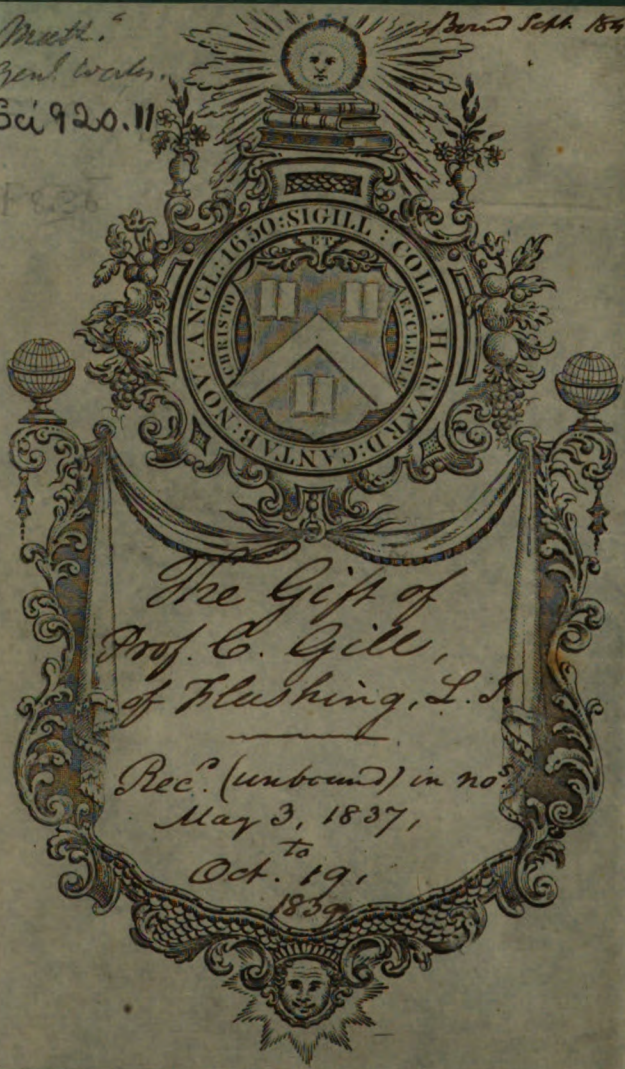 Math.
Genl. works.
Sci 920.11
Bound Sept. 18
SIGILL : COLL : HARVARD : CANTAB : NOV : ANGL : 1650 :
CHRISTO ET ECCLESIÆ
The Gift of
Prof. C. Gill,
of Flushing, L. I.
Recd. (unbound) in nos.
May 3, 1837,
to
Oct. 19,
1839.